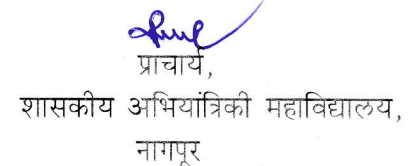 प्राचार्य,
शासकीय अभियांत्रिकी महाविद्यालय,
नागपूर